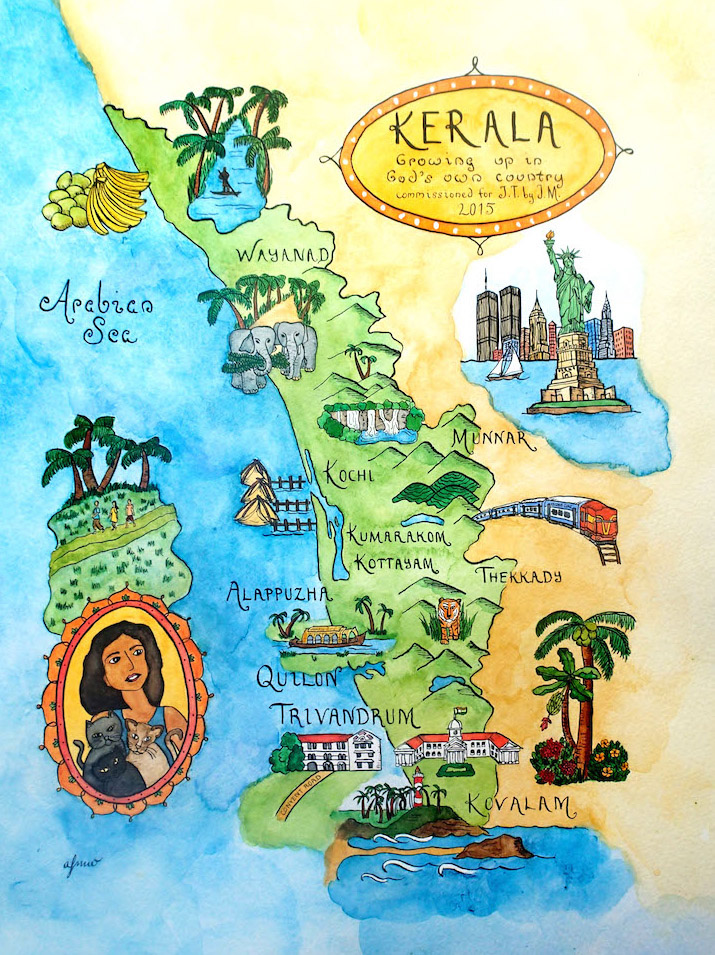 KERALA
Growing up in
God's own country
commissioned for J.T. by J.M.
2015
WAYANAD
Arabian
Sea
MUNNAR
KOCHI
KUMARAKOM
KOTTAYAM
THEKKADY
ALAPPUZHA
QUILON
TRIVANDRUM
CONVENT ROAD
KOVALAM